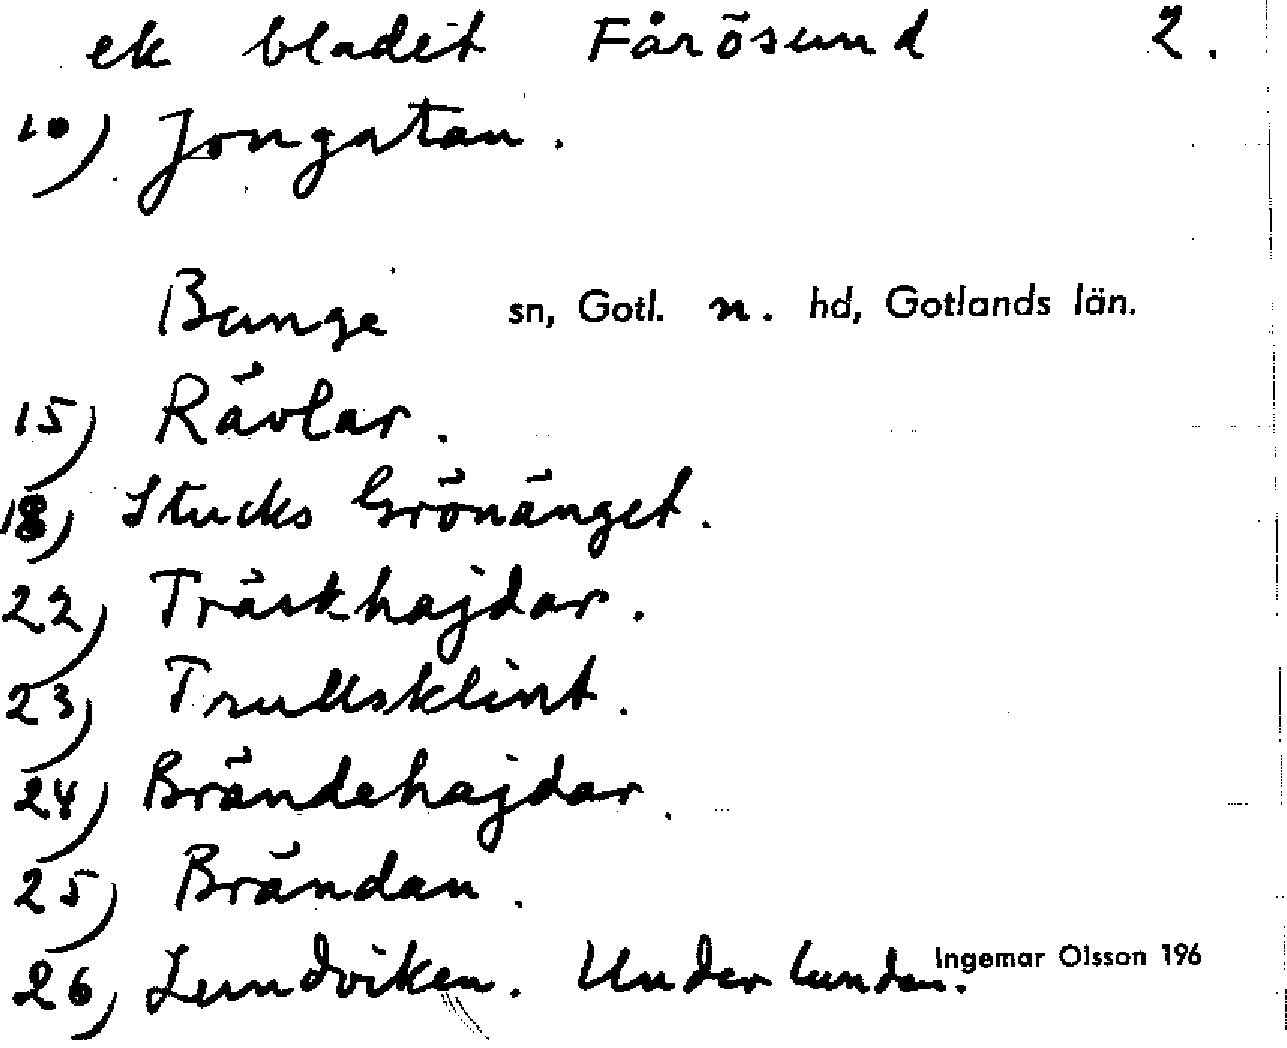 ek bladet Fårösund 2.
10) Jongatan.
Bunge sn, Gotl. n. hd, Gotlands län.
15) Rävlar.
18) Stucks Grönänget.
22) Träskhajdar.
23) Trullsklint.
24) Brändehajdar.
25) Brändan.
26) Lundviken. Under lunden.
Ingemar Olsson 196